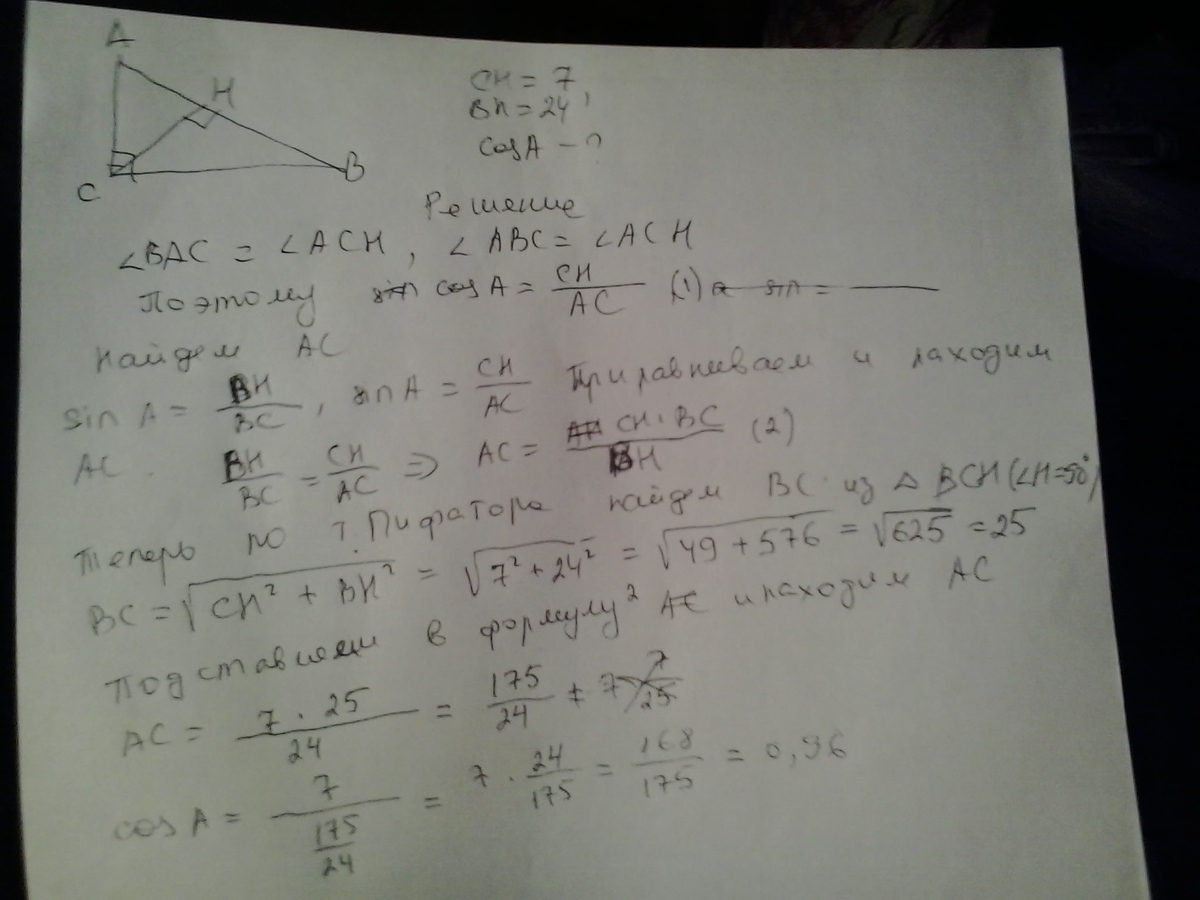 A
H
C
B
CH = 7,
BH = 24
cosA - ?
Решение
∠BAC = ∠ACH, ∠ABC = ∠ACH
Поэтому sin cosA = CH/AC (1) a sinA =
Найдем AC
sin A = BH/BC, sin A = CH/AC Приравниваем и находим
AC. BH/BC = CH/AC ⇒ AC = CH·BC/BH (2)
Теперь по т. Пифагора найдем BC из △BCH (∠H=90°)
BC = √CH² + BH² = √7² + 24² = √49 + 576 = √625 = 25
Подставляем в формулу 2 AC и находим AC
AC = 7 · 25/24 = 175/24 = 7 7/25
cos A = 7/(175/24) = 7 · 24/175 = 168/175 = 0,96